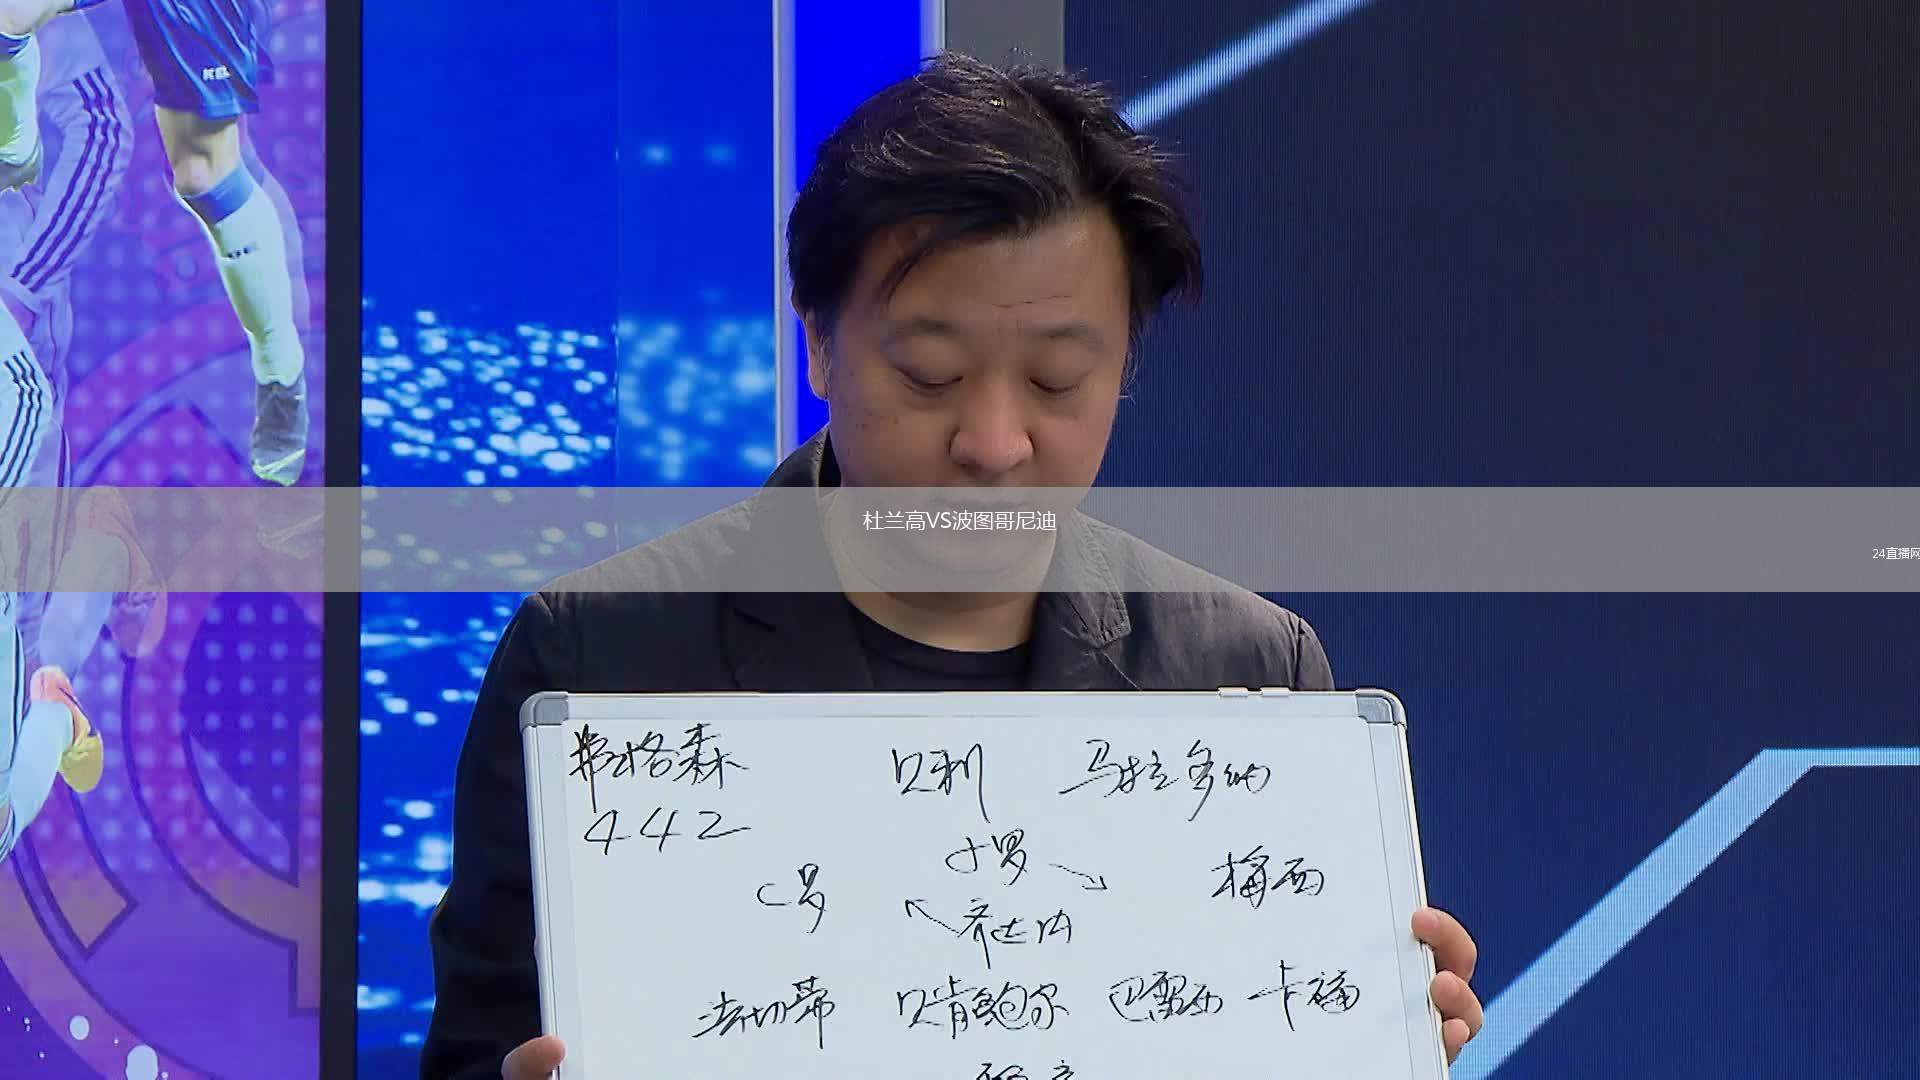 KEL
杜兰高VS波图哥尼迪
24直播网
弗格森 贝利 马拉多纳
442
小罗
C罗 梅西
齐达内
法切蒂 贝肯鲍尔 巴雷西 卡福